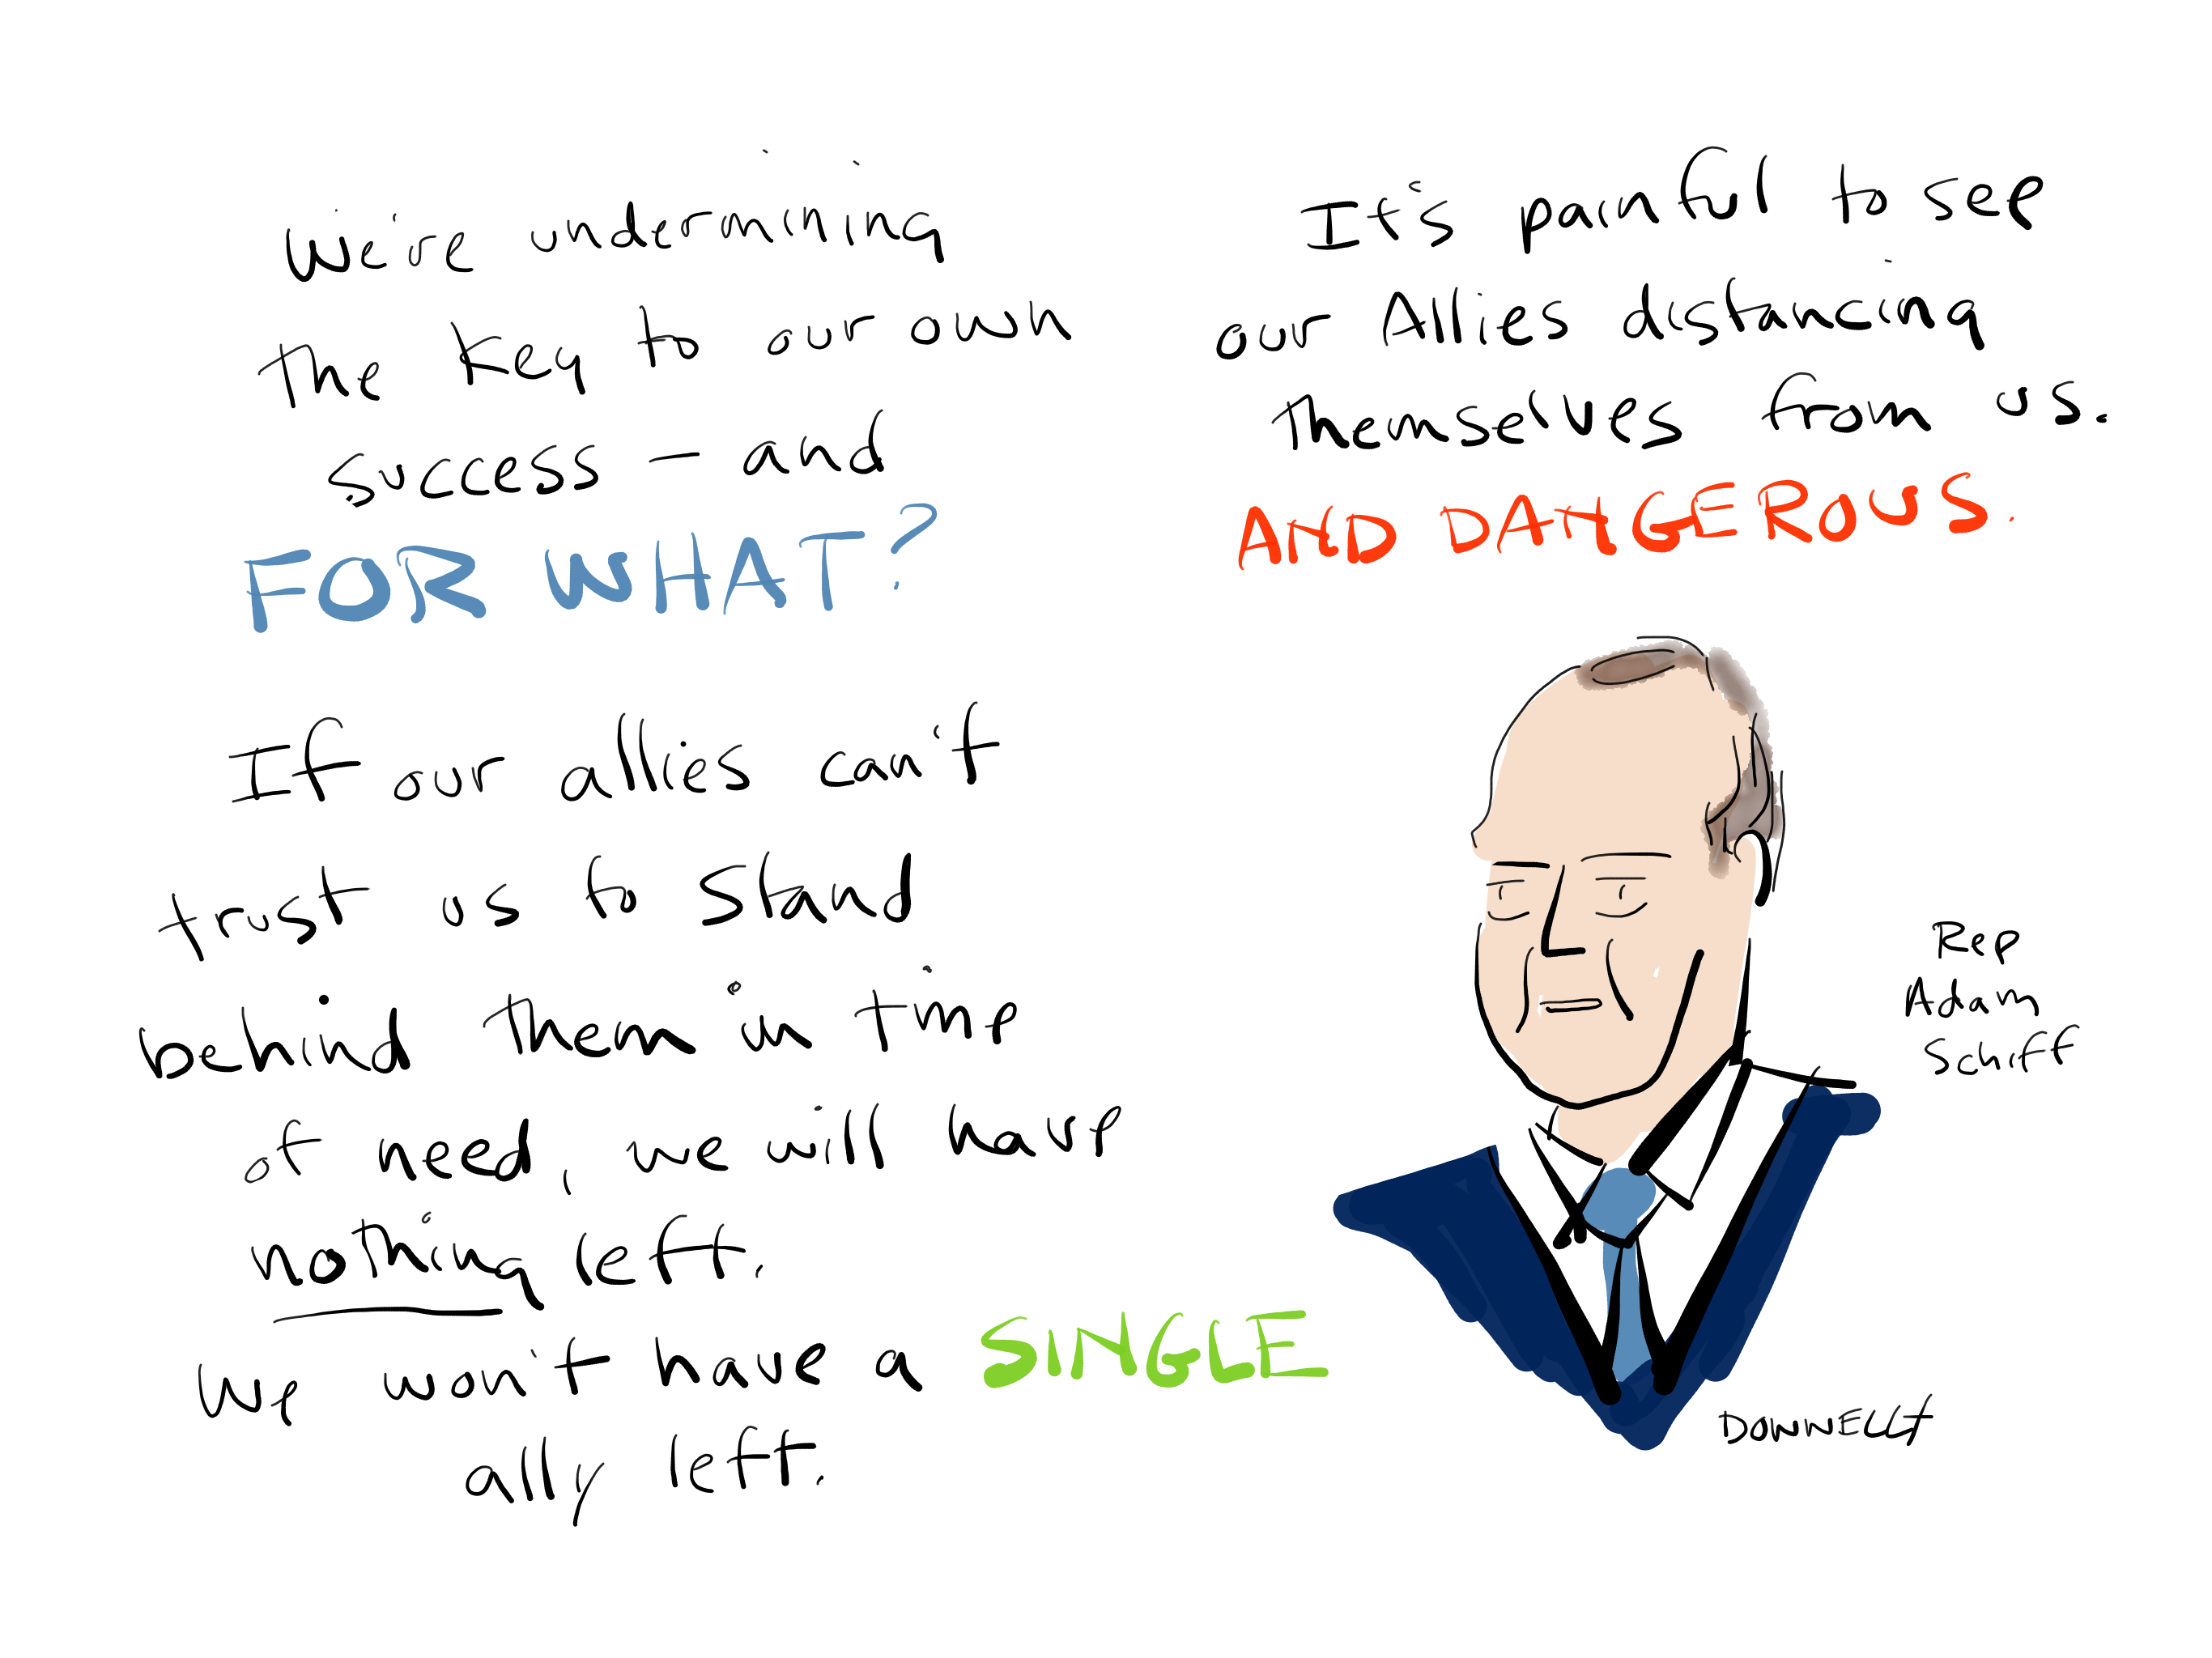 We're undermining
the key to our own
success — and
FOR WHAT?
If our allies can't
trust us to stand
behind them in time
of need, we will have
nothing left.
We won't have a SINGLE
ally left.
It's painful to see
our Allies distancing
themselves from us.
AND DANGEROUS.
Rep
Adam
Schiff
DONNELLY